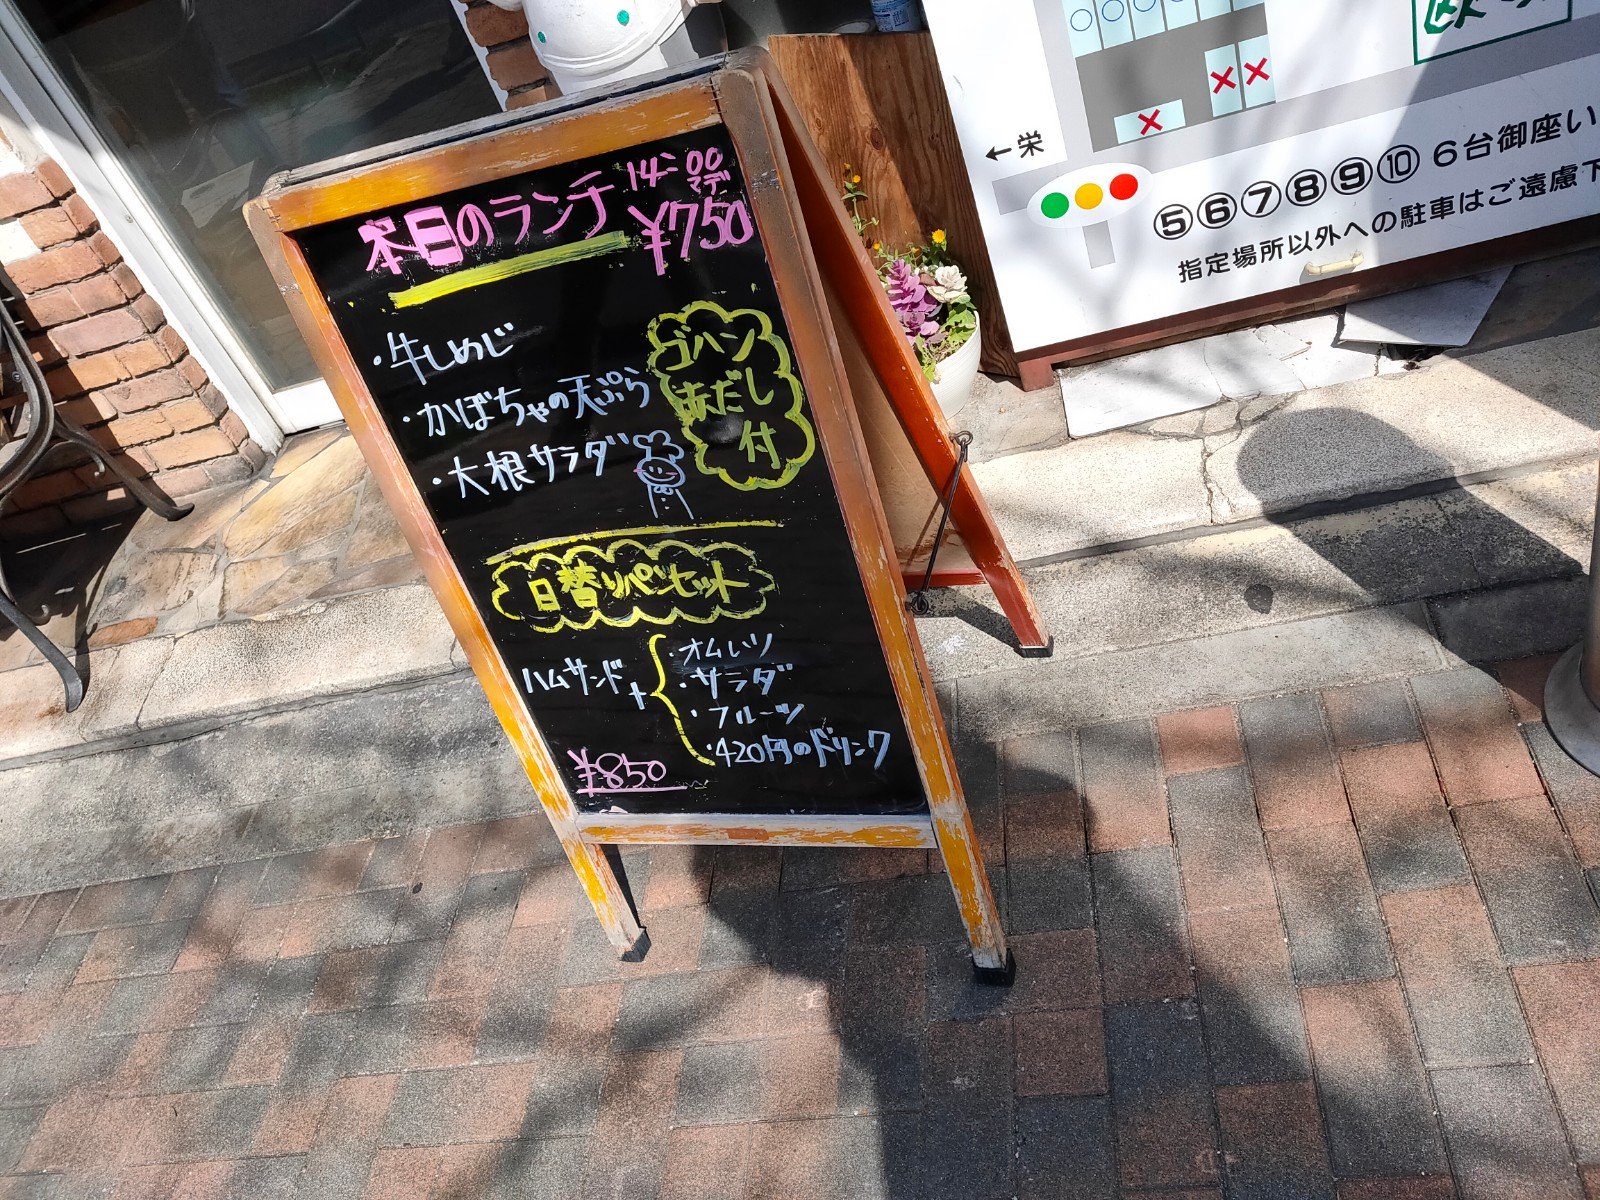 本日のランチ 14:00マデ
¥750
・牛しめじ
・かぼちゃの天ぷら
・大根サラダ
ゴハン
赤だし
付
日替りパンセット
ハムサンド +
・オムレツ
・サラダ
・フルーツ
・420円のドリンク
¥850
←栄
⑤⑥⑦⑧⑨⑩ 6台御座い
指定場所以外への駐車はご遠慮下